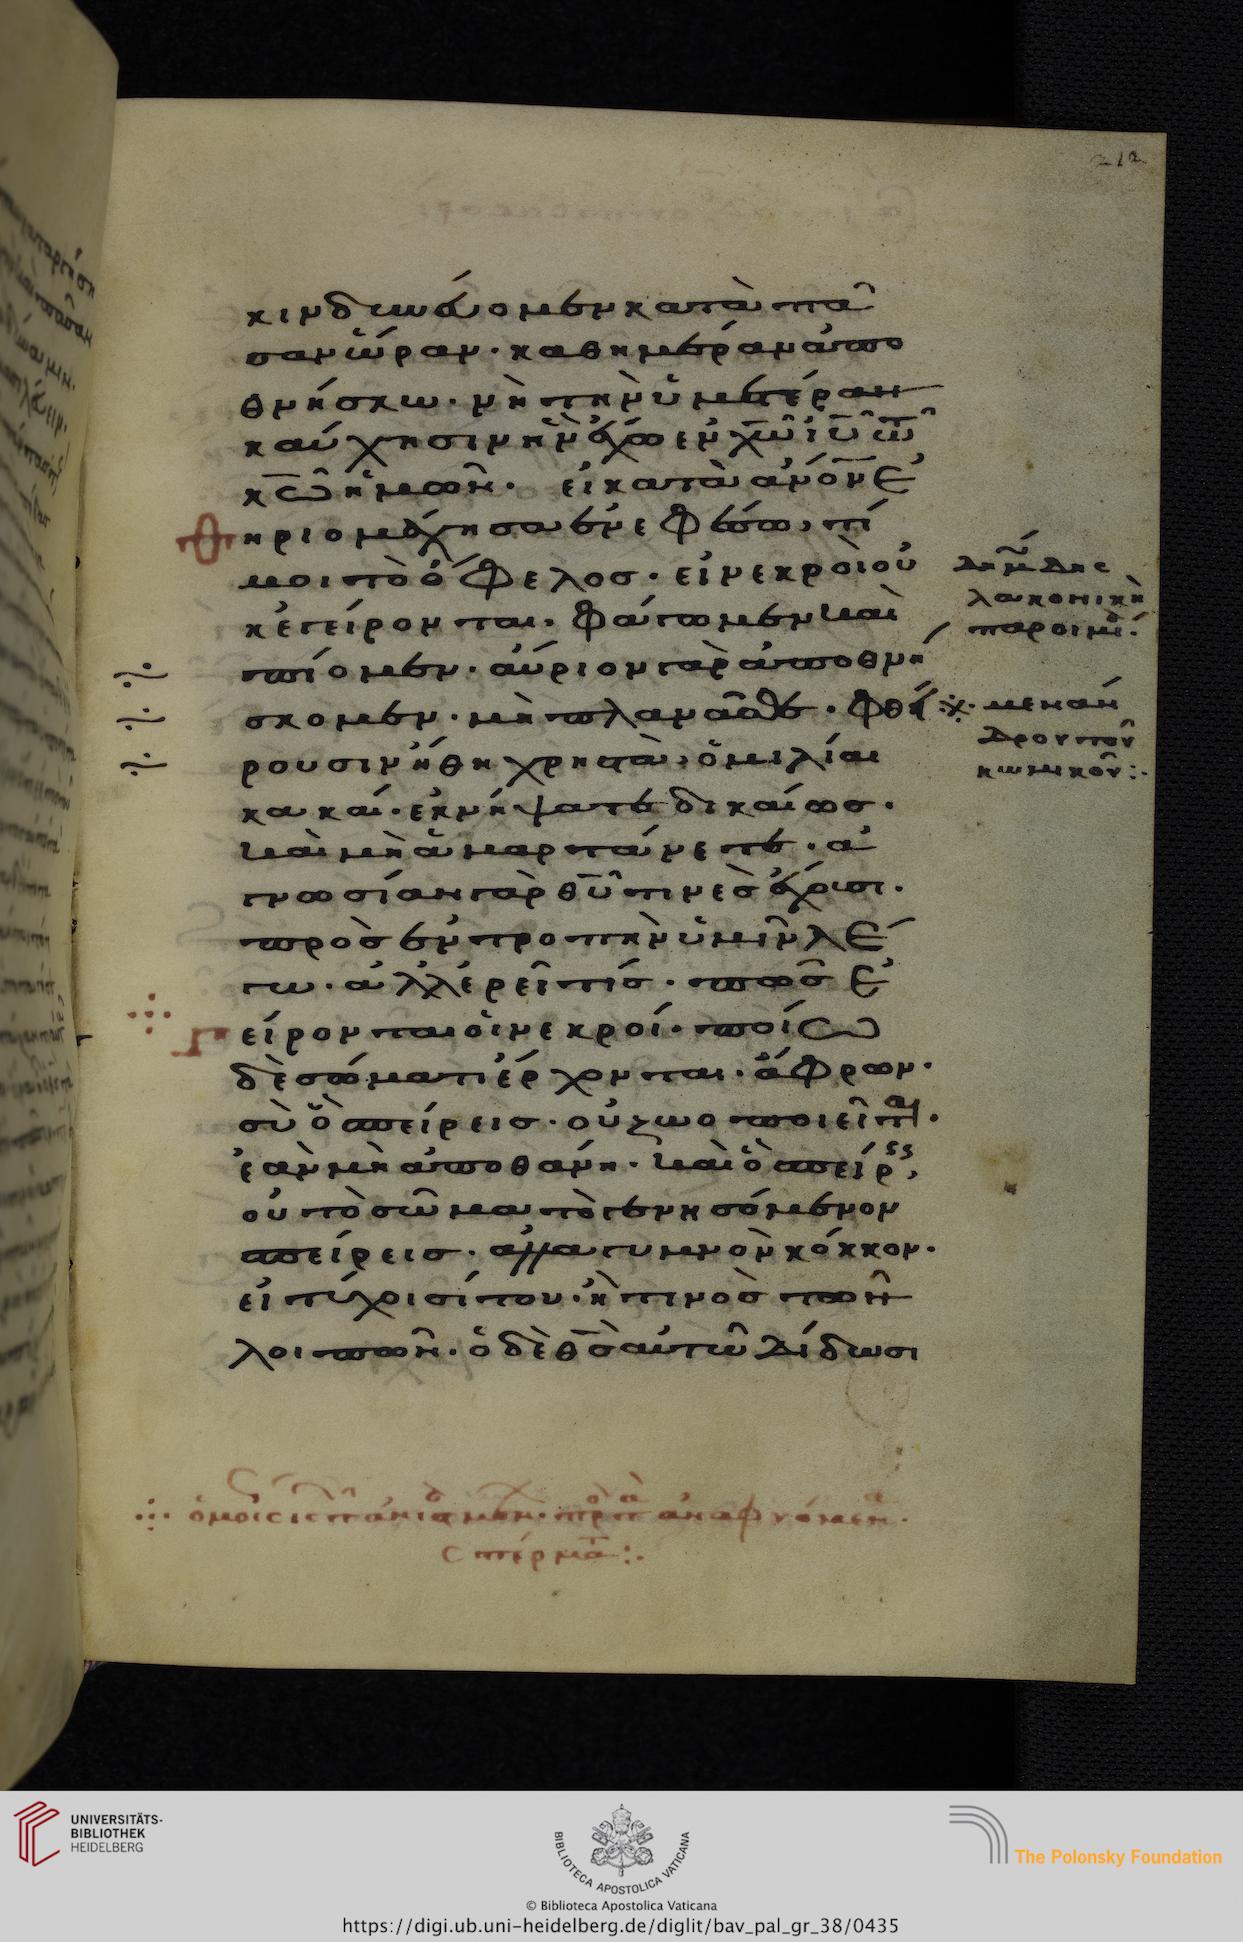 212
κινδυνεύομεν κατὰ πᾶ
σαν ὥραν· καθημέραν ἀπο
θνήσκω· νὴ τὴν ὑμετέραν
καύχησιν ἣν ἔχω ἐν χ̅ω̅ ι̅υ̅ τῶ
κ̅ω̅ ἡμῶν· εἰ κατὰ α̅ν̅ο̅ν̅ ἐ
θηριομάχησα ἐν ἐφέσω, τί
μοι τὸ ὄφελοσ· εἰ νεκροὶ οὐ
κ ἐγείρονται· φάγωμεν καὶ
πίομεν· αὔριον γὰρ ἀποθνή
σκομεν· μὴ πλανᾶσθε· φθεί
ρουσιν ἤθη χρηστὰ, ὁμιλίαι
κακαί· ἐκνήψατε δικαίωσ·
καὶ μὴ ἁμαρτάνετε· ἀ
γνωσίαν γὰρ θ̅υ̅ τινὲσ ἔχουσι·
πρὸσ ἐντροπὴν ὑμῖν λέ
γω· ἀλλ ἐρεῖ τίσ· πῶσ ἐ
γείρονται οἱ νεκροί· ποίω
δὲ σώματι ἔρχονται· ἄφρων·
σὺ ὃ σπείρεισ· οὐ ζωοποιεῖται·
ἐὰν μὴ ἀποθάνη· καὶ ὃ σπείρεισ,
οὐ τὸ σῶμα τὸ γενησόμενον
σπείρεισ· ἀλλα γυμνὸν κόκκον·
εἰ τύχοι σίτου· ἤ τινοσ τῶν
λοιπῶν· ὁ δὲ θ̅σ̅ αὐτῶ δίδωσι
λακονικὴ
παροιμία·
※ μενάν
δρου τοῦ
κωμικοῦ:·
σπέρματα:·
UNIVERSITÄTS-
BIBLIOTHEK
HEIDELBERG
BIBLIOTECA APOSTOLICA VATICANA
The Polonsky Foundation
© Biblioteca Apostolica Vaticana
https://digi.ub.uni-heidelberg.de/diglit/bav_pal_gr_38/0435